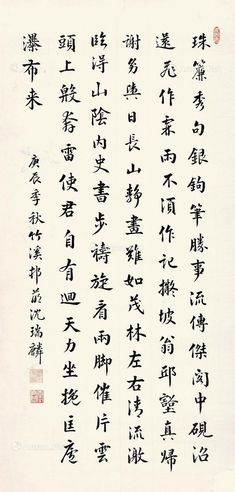 珠簾秀句銀鉤筆勝事流傳傑閣中硯沼
還飛作霖雨不須作記擬坡翁邱壑真歸
謝男輿日長山靜畫難如茂林左右清流激
臨得山陰內史書步禱旋看雨腳催片雲
頭上殷奔雷使君自有迴天力坐挽匡廬
瀑布来
庚辰季秋竹溪邨
沈瑞麟